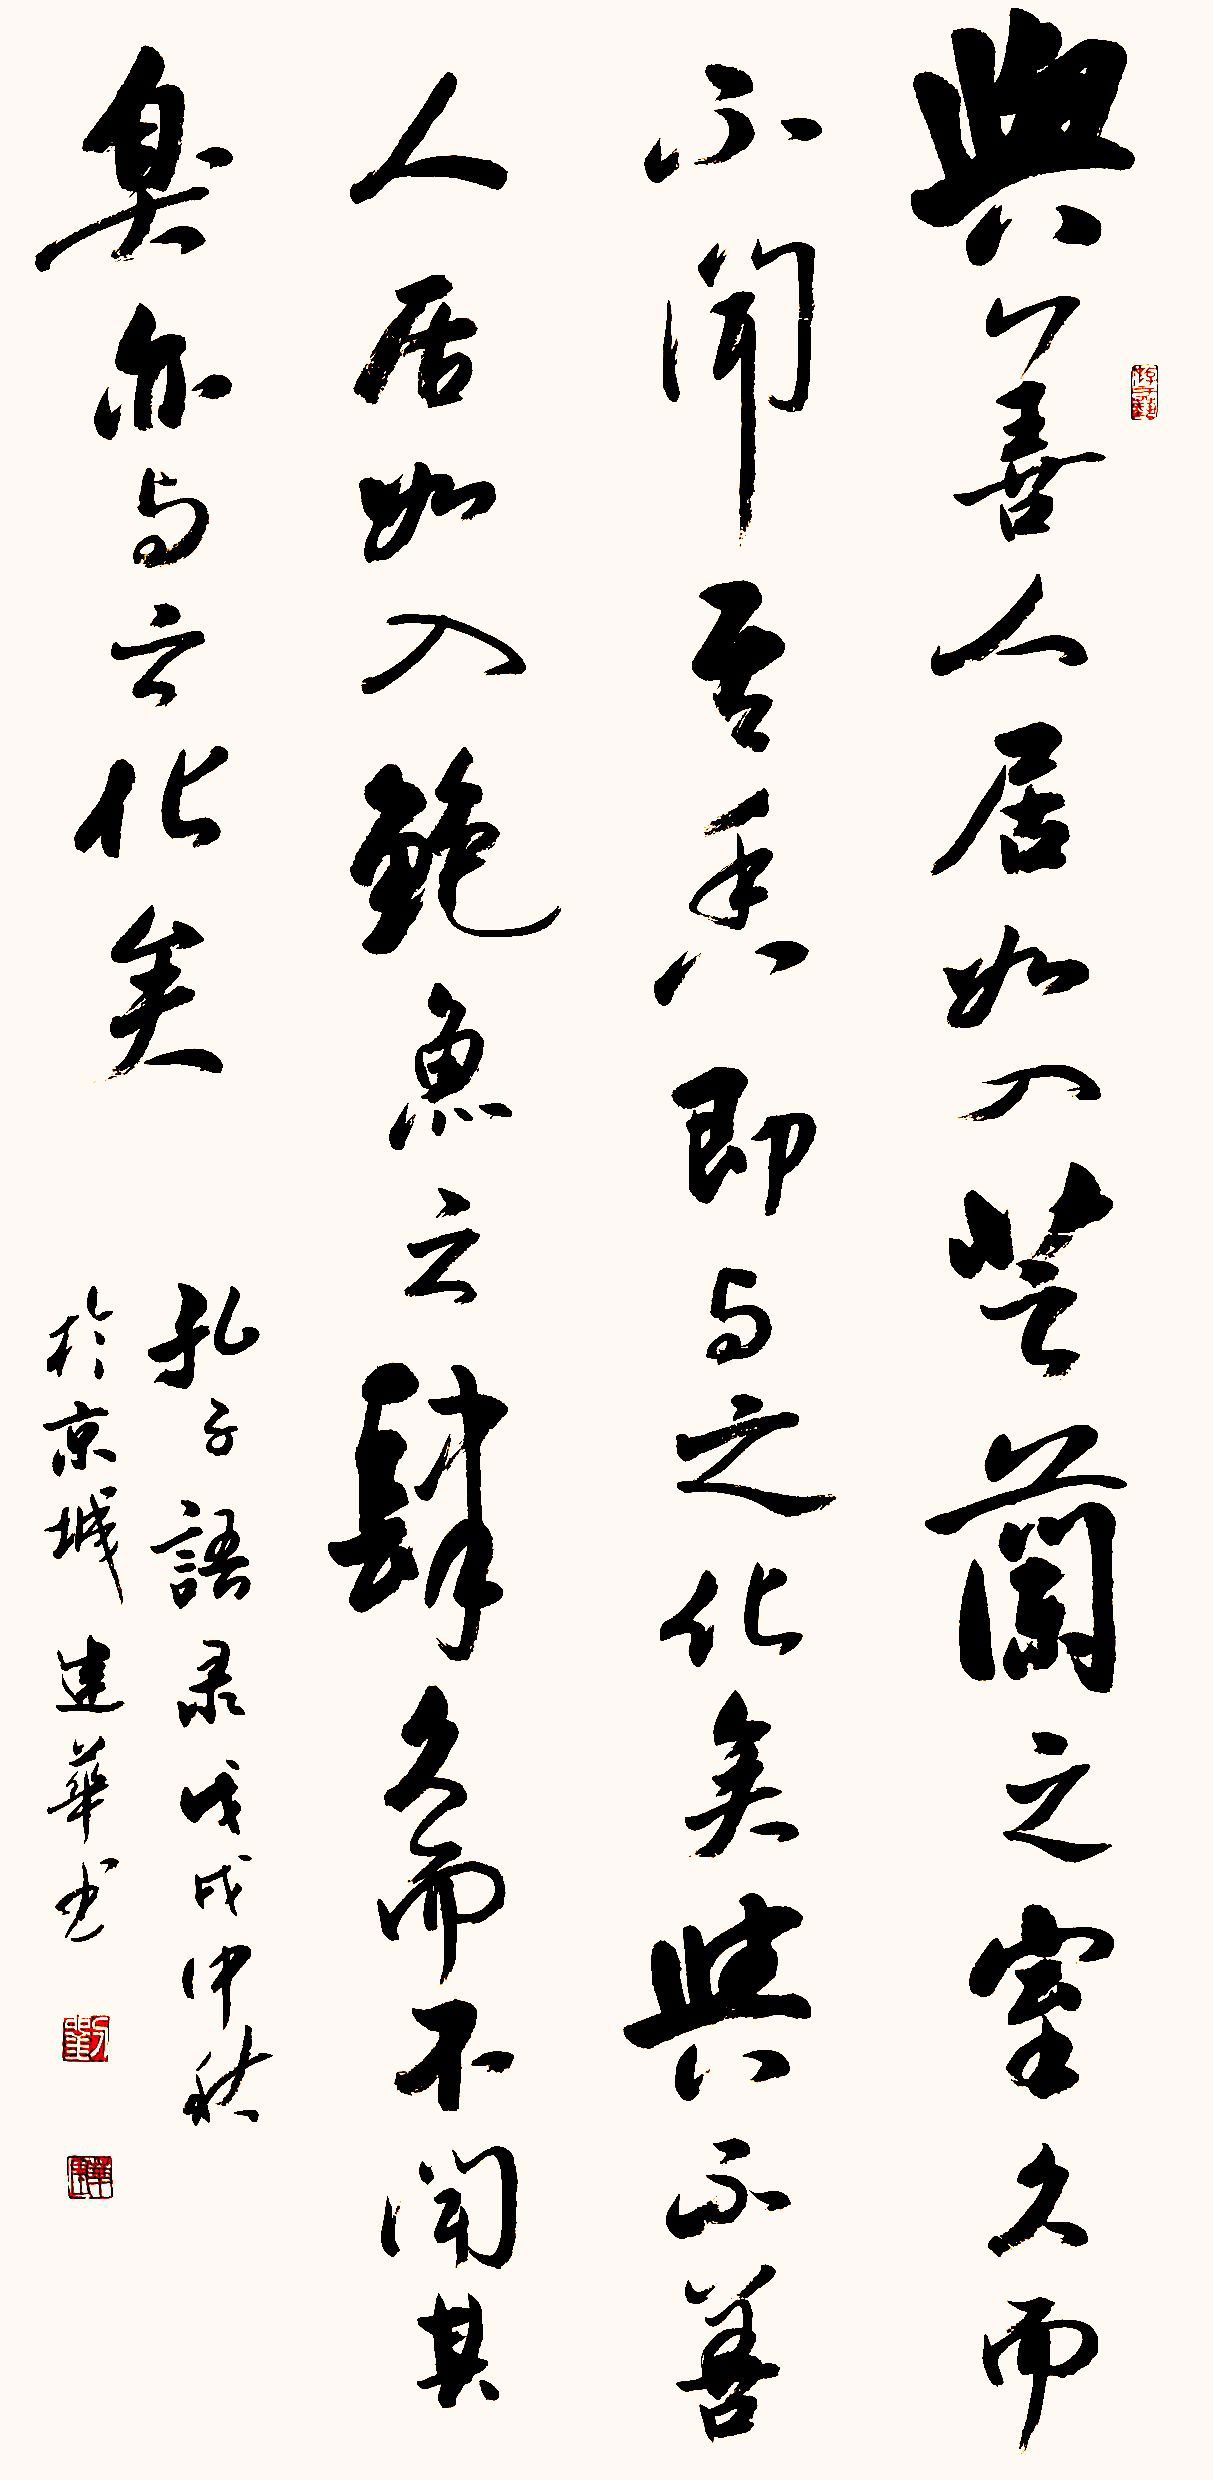 與善人居如入芝蘭之室久而
不聞其香即与之化矣與不善
人居如入鮑魚之肆久而不聞其
臭亦与之化矣
孔子語录戊戌中秋
於京城建華书